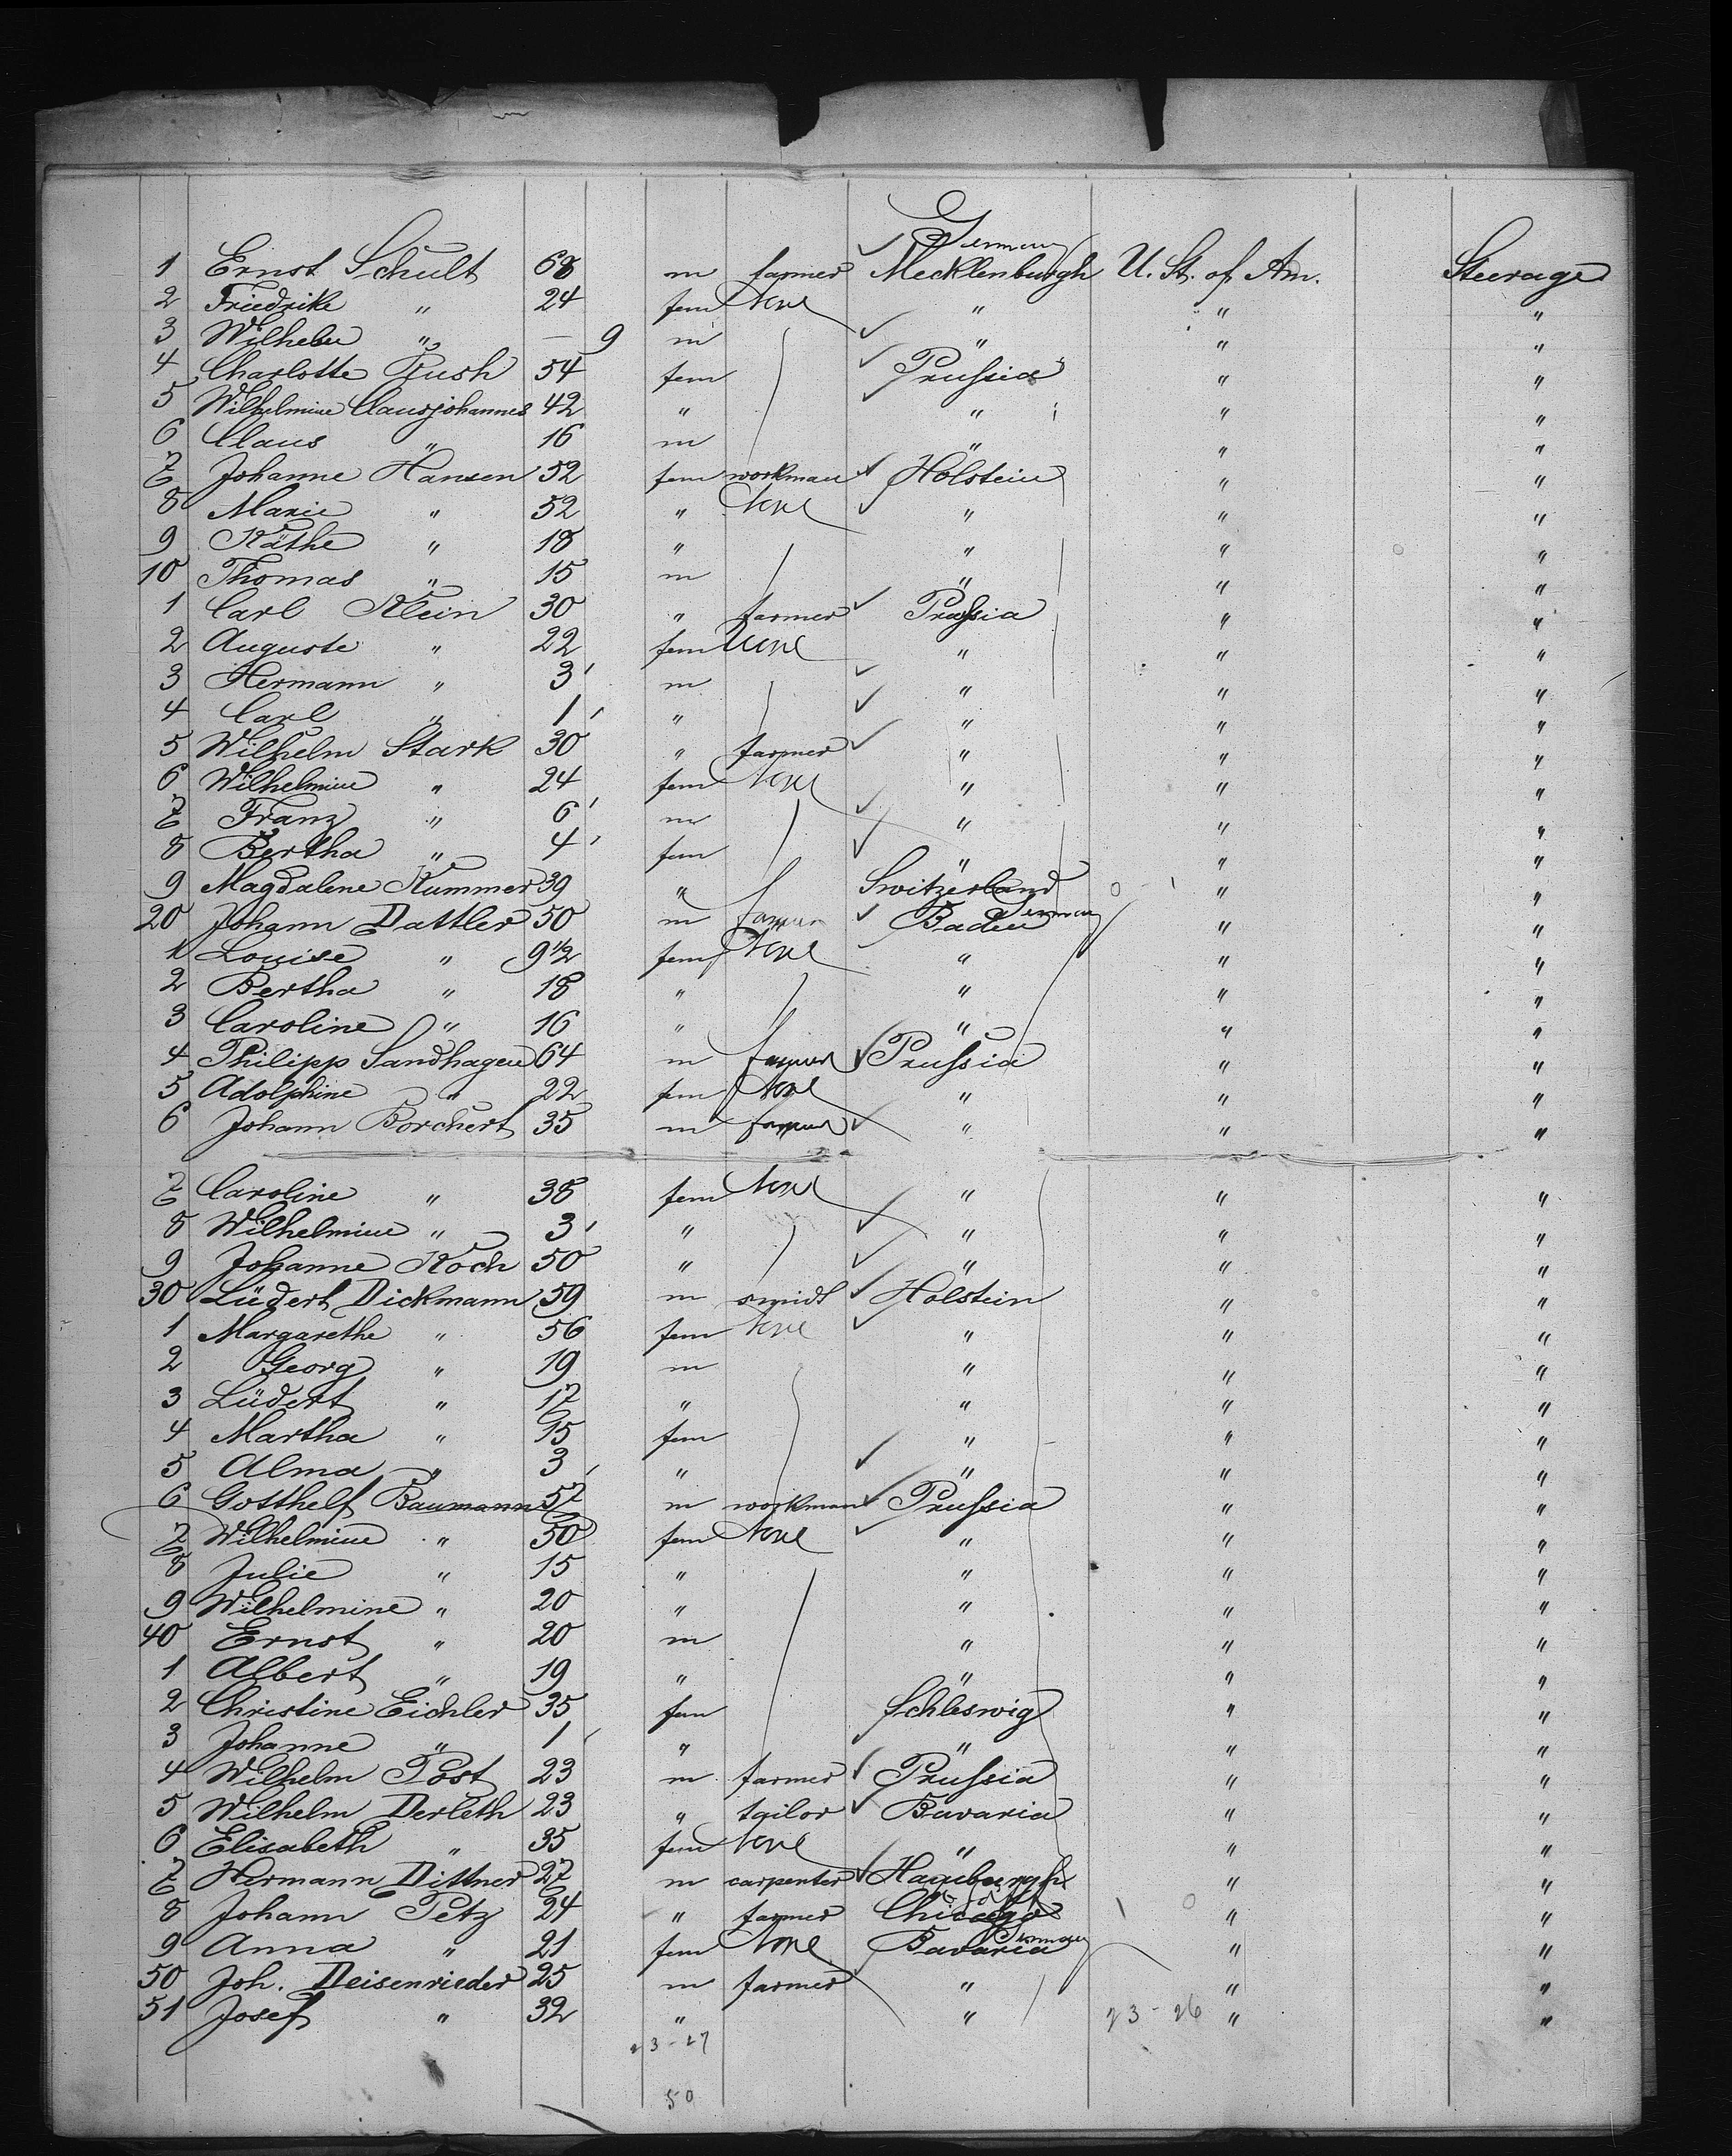 Germany
1 Ernst Schult 68 m farmer Mecklenburgh U. St. of Am. Steerage
2 Friedrike " 24 fem None " " "
3 Wilhelm " — 9 m " " "
4 Charlotte Rush 54 fem Prussia " "
5 Wilhelmine Clausjohannes 42 " " " "
6 Claus " 16 m " " "
7 Johanne Hansen 52 fem workman Holstein " "
8 Marie " 52 " None " " "
9 Käthe " 18 " " " "
10 Thomas " 15 m " " "
1 Carl Klein 30 " farmer Prussia " "
2 Auguste " 22 fem None " " "
3 Hermann " 3 m " " "
4 Carl " 1 " " " "
5 Wilhelm Stark 30 " farmer " " "
6 Wilhelmine " 24 fem None " " "
7 Franz " 6 m " " "
8 Bertha " 4 fem " " "
9 Magdalene Kummer 39 " Switzerland " "
20 Johann Dattler 50 m farmer Baden Germany " "
1 Louise " 9 1/2 fem None " " "
2 Bertha " 18 " " " "
3 Caroline " 16 " " " "
4 Philipp Sandhagen 64 m farmer Prussia " "
5 Adolphine " 22 fem None " " "
6 Johann Borchert 35 m farmer " " "
7 Caroline " 38 fem None " " "
8 Wilhelmine " 3 " " " "
9 Johanne Koch 50 " " " "
30 Lüdert Dickmann 59 m smidt Holstein " "
1 Margarethe " 56 fem None " " "
2 Georg " 19 m " " "
3 Lüdert " 17 " " " "
4 Martha " 15 fem " " "
5 Alma " 3 " " " "
6 Gotthelf Baumann 57 m workman Prussia " "
7 Wilhelmine " 50 fem None " " "
8 Julie " 15 " " " "
9 Wilhelmine " 20 " " " "
40 Ernst " 20 m " " "
1 Albert " 19 " " " "
2 Christine Eichler 35 fem Schleswig " "
3 Johanne " 1 " " " "
4 Wilhelm Post 23 m farmer Prussia " "
5 Wilhelm Derleth 23 " tailor Bavaria " "
6 Elisabeth " 35 fem None " " "
7 Hermann Dittner 27 m carpenter Hamburgh " "
8 Johann Petz 24 " farmer Chicago " "
9 Anna " 21 fem None Bavaria Germany " "
50 Joh. Deisenrieder 25 m farmer " " "
51 Josef " 32 " " 23-26 " "
23-27
50